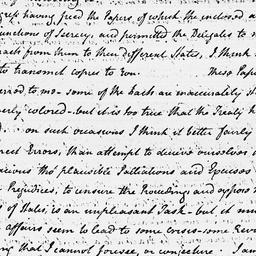 gress having freed the Papers, of which the enclosed a
unctions of Secrecy, and permitted the Delegates to m
racts from them to their different States, I think
to transmit copies to you. These Pape
eived to me - some of the facts are inaccurately st
erly colored - but it is too true that the Treaty h
d... on such occasions I think it better fairly
rrect Errors, than attempt to deceive ourselves
nious tho' plausible Palliations and Excuses
Prejudices, to ensure the Proceedings and oppose
of States, is an unpleasant Task - but it mu
affairs seem to lead to some crisis - some Revo
ng that I cannot foresee, or conjecture. I am